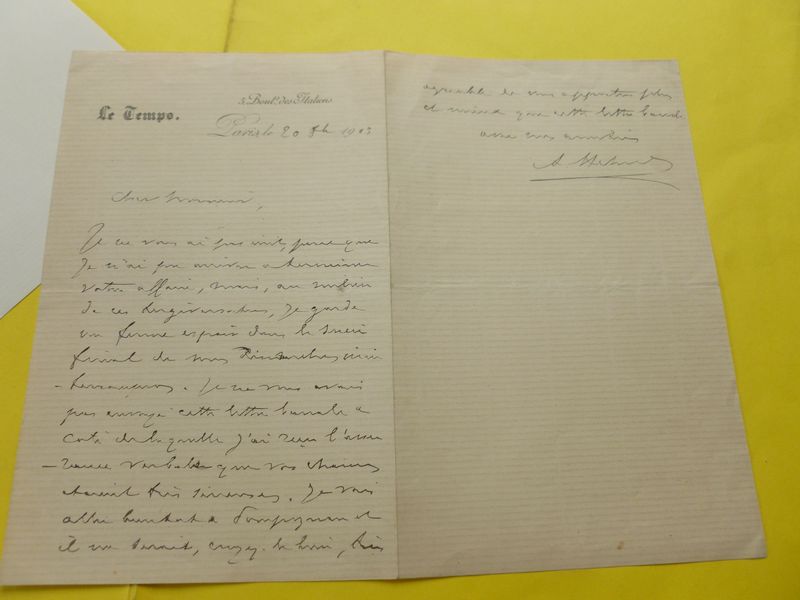 Le Temps.
5, Boul.d des Italiens
Paris le 20 1903
Cher Monsieur,
Je ne vous ai pas écrit, parce que
Je n'ai pu arriver a terminer
votre affaire, mais, au milieu
de ces tergiversations, Je garde
un ferme espoir dans le succès
final de nos démarches
Je ne vous avais
pas envoyé cette lettre banale a
coté de laquelle j'ai reçu l'assu
- rance verbale que vos chances
étaient très sérieuses. Je vais
aller bientot a Pompignan et
il me serait, croyez-le bien, très
agréable de vous apporter plus
et mieux que cette lettre banale
avec mes amitiés